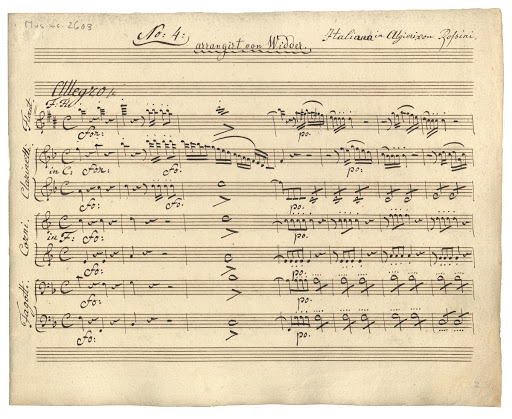 Mus. ms. 2603
No: 4:
Italiana in Algieri von Rossini.
arrangirt von Widder.
Allegro
for:
po.
Clarinetti.
in C: For:
fo:
po.
fo:
fo:
po.
Corni.
in F: fo:
po.
fo:
po.
Fagotti.
fo:
po.
fo:
po.
2